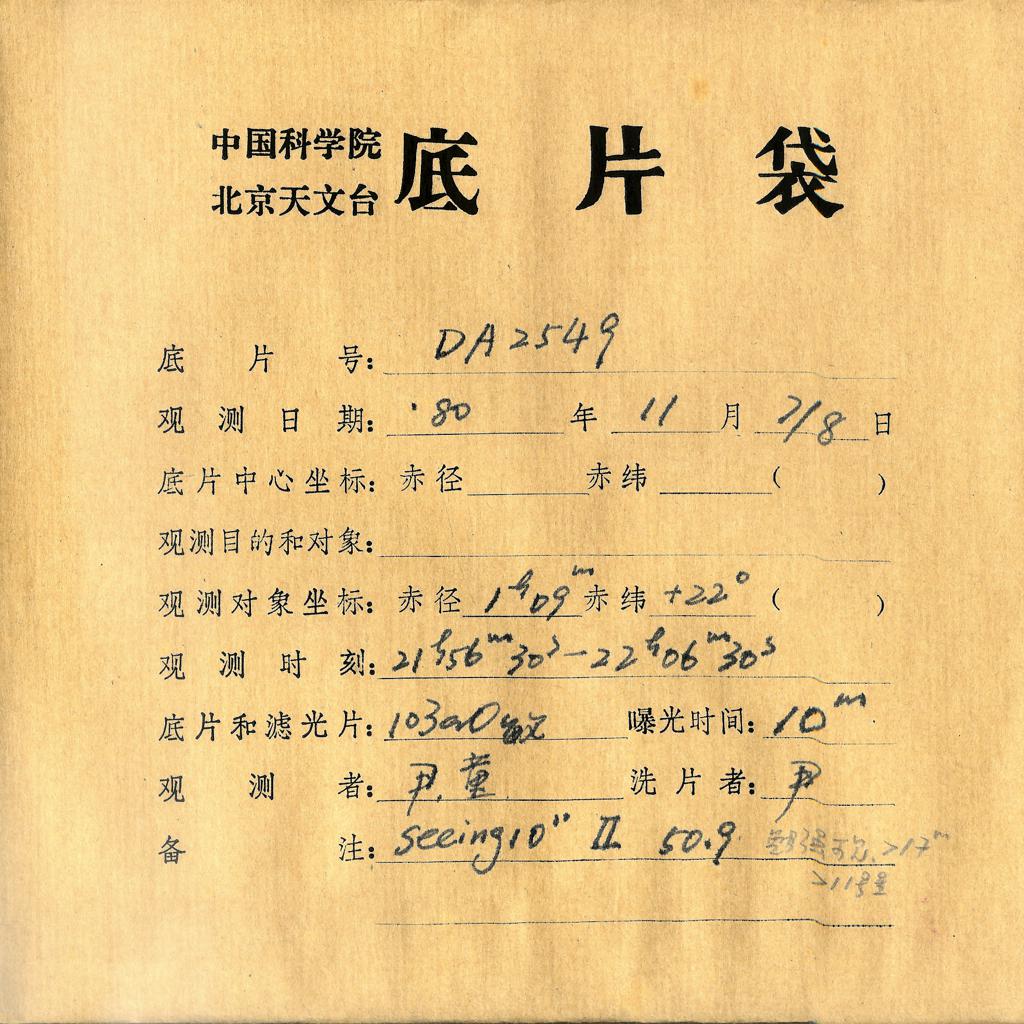 中国科学院
北京天文台 底片袋
底片号: DA2549
观测日期: '80 年 11 月 7/8 日
底片中心坐标: 赤径 赤纬 ( )
观测目的和对象:
观测对象坐标: 赤径 1h09m 赤纬 +22° ( )
观测时刻: 21h56m30s—22h06m30s
底片和滤光片: 103aO敏 曝光时间: 10m
观测者: 尹.童 洗片者: 尹
备注: seeing10" II 50.9 >17m
>11号星